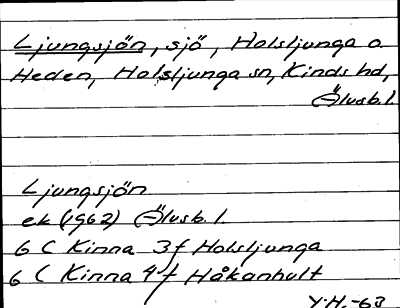 Ljungsjön, sjö, Holsljunga o.
Heden, Holsljunga sn, Kinds hd,
Älvsb. l.
Ljungsjön
ek (1962) Älvsb. l
6 C Kinna 3 f Holsljunga
6 C Kinna 4 f Håkanhult
Y.H.-63